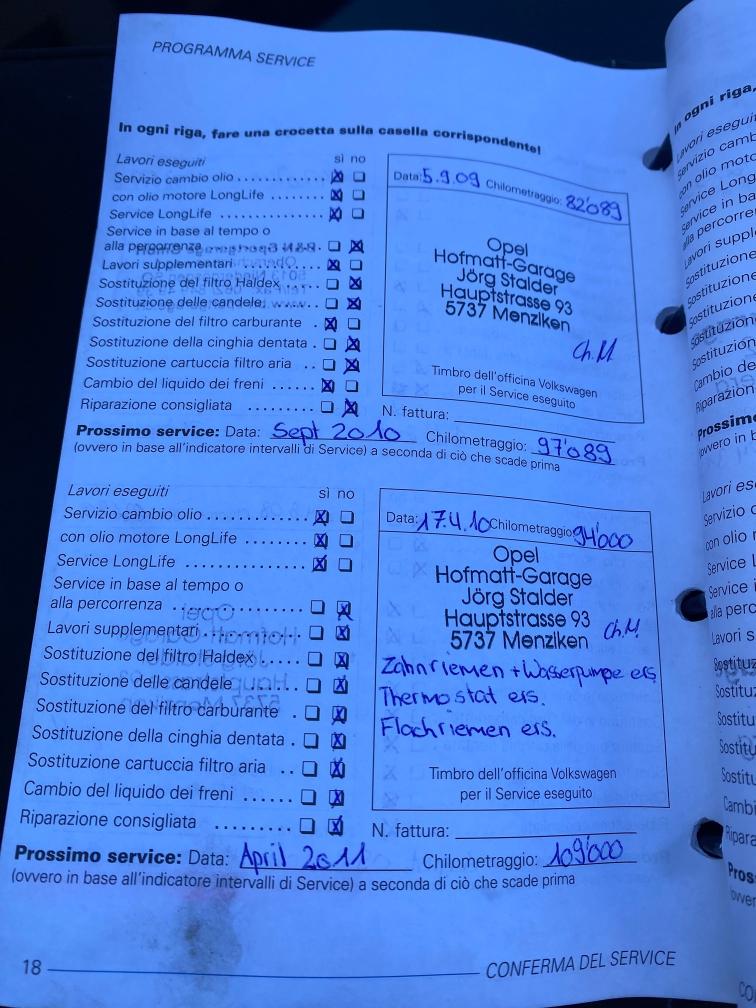 PROGRAMMA SERVICE
In ogni riga, fare una crocetta sulla casella corrispondente!
Lavori eseguiti sì no
Servizio cambio olio
con olio motore LongLife
Service LongLife
Service in base al tempo o
alla percorrenza
Lavori supplementari
Sostituzione del filtro Haldex
Sostituzione delle candele
Sostituzione del filtro carburante
Sostituzione della cinghia dentata
Sostituzione cartuccia filtro aria
Cambio del liquido dei freni
Riparazione consigliata
Data: 5.9.09 Chilometraggio: 82'089
Opel
Hofmatt-Garage
Jörg Stalder
Hauptstrasse 93
5737 Menziken
Ch.M.
Timbro dell'officina Volkswagen
per il Service eseguito
N. fattura:
Prossimo service: Data: Sept 2010 Chilometraggio: 97'089
(ovvero in base all'indicatore intervalli di Service) a seconda di ciò che scade prima
Lavori eseguiti sì no
Servizio cambio olio
con olio motore LongLife
Service LongLife
Service in base al tempo o
alla percorrenza
Lavori supplementari
Sostituzione del filtro Haldex
Sostituzione delle candele
Sostituzione del filtro carburante
Sostituzione della cinghia dentata
Sostituzione cartuccia filtro aria
Cambio del liquido dei freni
Riparazione consigliata
Data: 17.4.10 Chilometraggio 94'000
Opel
Hofmatt-Garage
Jörg Stalder
Hauptstrasse 93
5737 Menziken
Ch.M.
Zahnriemen + Wasserpumpe ers
Thermostat ers.
Flachriemen ers.
Timbro dell'officina Volkswagen
per il Service eseguito
N. fattura:
Prossimo service: Data: April 2011 Chilometraggio: 109'000
(ovvero in base all'indicatore intervalli di Service) a seconda di ciò che scade prima
18 CONFERMA DEL SERVICE